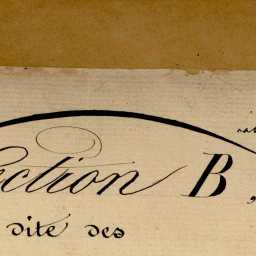 ection B,
dite des